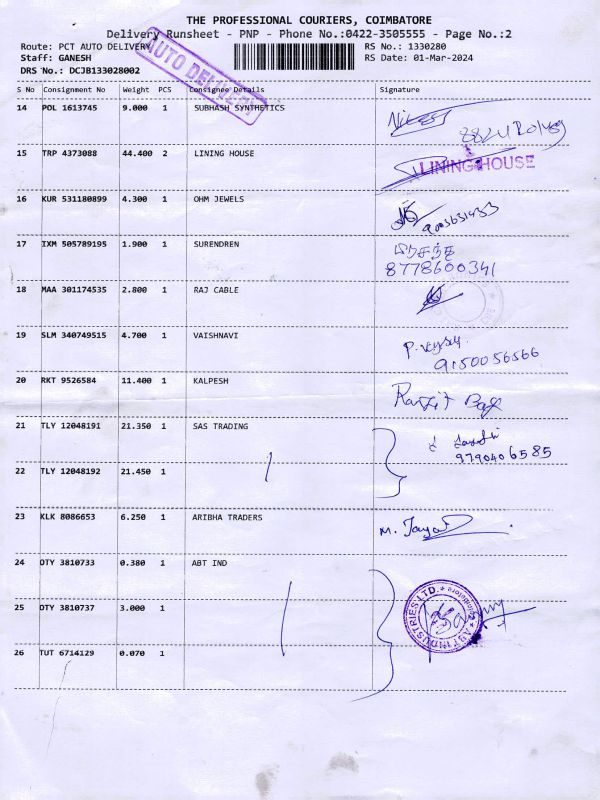 THE PROFESSIONAL COURIERS, COIMBATORE
Delivery Runsheet - PNP - Phone No.:0422-3505555 - Page No.:2
Route: PCT AUTO DELIVERY RS No.: 1330280
Staff: GANESH RS Date: 01-Mar-2024
DRS No.: DCJB133028002
AUTO DELIVERY
S No Consignment No Weight PCS Consignee Details Signature
14 POL 1613745 9.000 1 SUBHASH SYNTHETICS
15 TRP 4373088 44.400 2 LINING HOUSE LINING HOUSE
16 KUR 531180899 4.300 1 OHM JEWELS
17 IXM 505789195 1.900 1 SURENDREN
8778600341
18 MAA 301174535 2.800 1 RAJ CABLE
19 SLM 340749515 4.700 1 VAISHNAVI
9150056566
20 RKT 9526584 11.400 1 KALPESH
21 TLY 12048191 21.350 1 SAS TRADING
9790406585
22 TLY 12048192 21.450 1
23 KLK 8086653 6.250 1 ARIBHA TRADERS
24 OTY 3810733 0.380 1 ABT IND
25 OTY 3810737 3.000 1 ABT INDUSTRIES LTD.
26 TUT 6714129 0.070 1